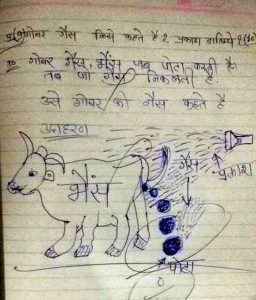 प्र०१ गोबर गैस किसे कहते है ? प्रकाश डालिये ? (१०)
उ० गोबर गैस, भैंस जब पोटा करती है,
तब जो गैस निकलती है
उसे गोबर की गैस कहते है
उदाहरण
भैंस
गैस
प्रकाश
पोटा